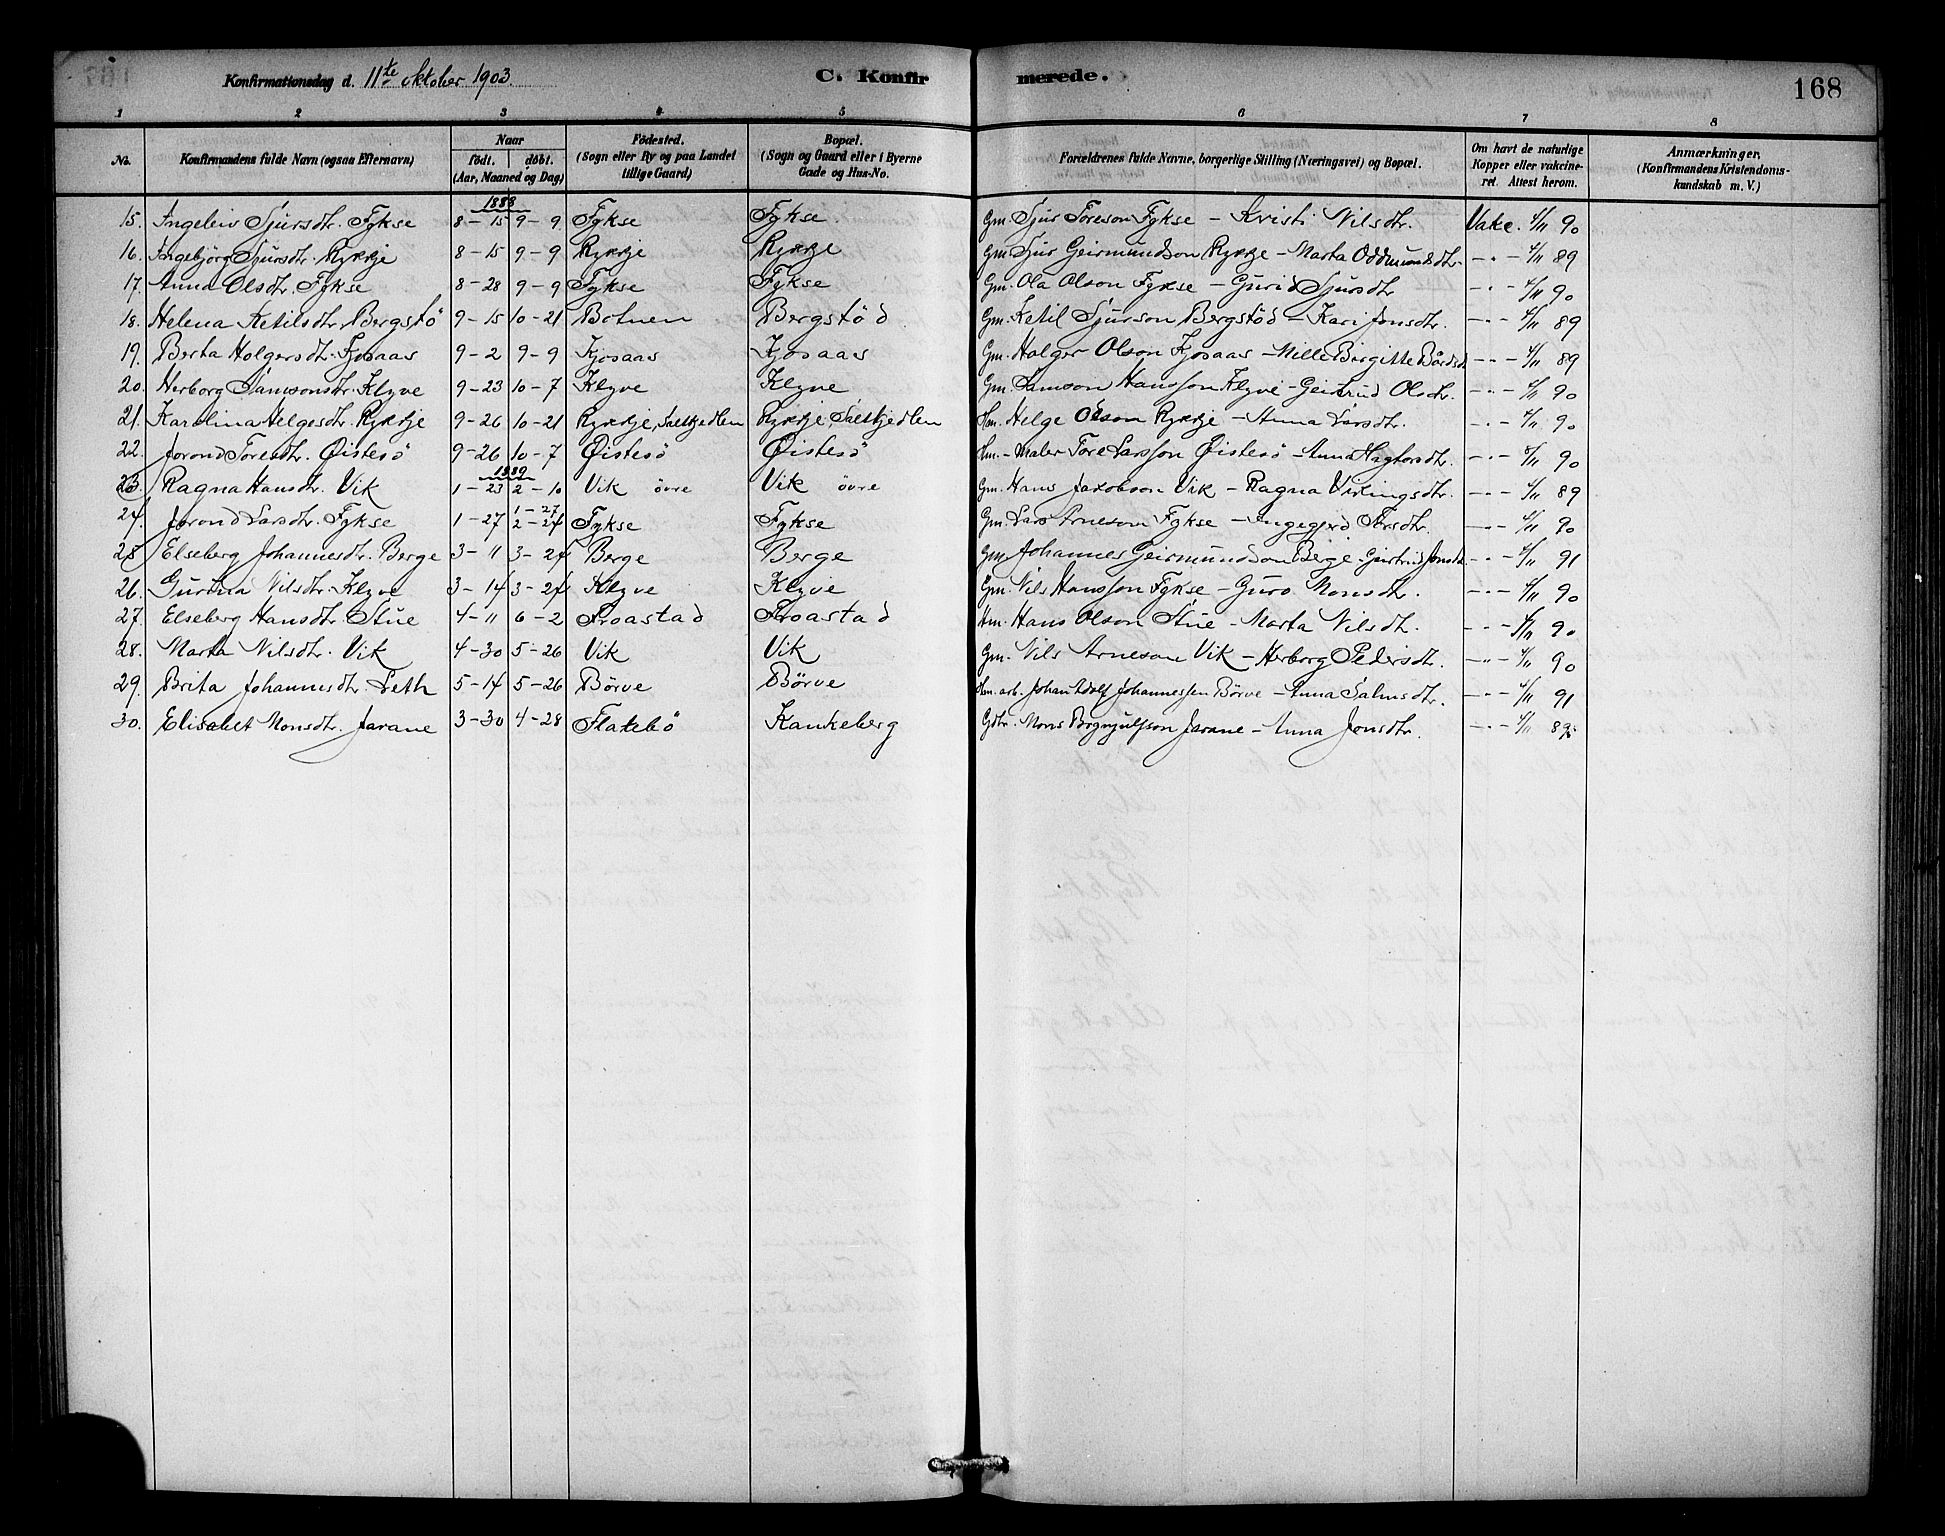 Konfirmationsdag d. 11te Oktober 1903. C. Konfirmerede. 168
1 2 3 4 5 6 7 8
No. Konfirmandens fulde Navn (ogsaa Efternavn) Naar født. døbt. (Aar, Maaned og Dag) Fødested. (Sogn eller By og paa Landet tillige Gaard) Bopæl. (Sogn og Gaard eller i Byerne Gade og Hus-No. Forældrenes fulde Navne, borgerlige Stilling (Næringsvei) og Bopæl. Om havt de naturlige Kopper eller vakcineret. Attest herom. Anmærkninger. (Konfirmandens Kristendomskundskab m. V.)
1888
15. Ingeleiv Sjursdtr. Fykse 8-15 9-9 Fykse Fykse. Gm. Sjur Toreson Fykse - Kristi Nilsdtr. Vakc. 4/11 90
16. Ingebjörg Sjursdtr. Rykkje 8-15 9-9 Rykkje Rykkje Gm. Sjur Geirmundson Rykkje - Marta Oddmundsdtr. -"- 4/11 89
17. Anna Olsdtr. Fykse 8-28 9-9 Fykse Fykse Gm. Ola Olson Fykse - Gurid Sjursdtr -"- 4/11 90
18. Helena Ketilsdtr. Bergstö 9-15 10-21 Botnen Bergstöd Gm. Ketil Sjurson Bergstöd - Kari Jonsdtr. -"- 4/11 89
19. Berta Holgersdtr. Kjosaas 9-2 9-9 Kjosaas Kjosaas Gm. Holger Olson Kjosaas - Mille Birgitte Bårdsd -"- 4/11 89
20. Herborg Samsonsdtr. Klyve 9-23 10-7 Klyve Klyve Gm. Samson Hansson Klyve - Geirtrud Olsdtr. -"- 4/11 90
21. Karolina Helgesdtr. Rykkje 9-26 10-21 Rykkje Salthjedlen Rykkje Salthjedlen Hm. Helge Olson Rykkje - Anna Larsdtr. -"- 4/11 90
22. Jorond Toresdtr. Öistesö 9-26 10-7 Öistesö Öistesö Hm. - Maler Tore Larsson Öistesö - Anna Hagtorsdtr. -"- 4/11 90
1889
23. Ragna Hansdtr. Vik 1-23 2-10 Vik övre Vik övre Gm. Hans Jakobson Vik - Ragna Vikingsdtr. -"- 4/11 89
1-27
24. Jorond Larsdtr. Fykse 1-27 2-24 Fykse Fykse Gm. Lars Arneson Fykse - Ingegjerd Torsdtr. -"- 4/11 90
25 Elseberg Johannesdtr. Berge 3-11 3-24 Berge Berge Gm. Johannes Geirmundson Berge - Geirtrud Jonsdtr -"- 4/11 91
26. Gurina Nilsdtr. Klyve 3-14 3-24 Klyve Klyve Gm. Nils Hansson Fykse - Guro Monsdtr. -"- 4/11 90
27. Elseberg Hansdtr. Stue 4-11 6-2 Froastad Froastad Hm. Hans Olson Stue - Marta Nilsdtr. -"- 4/11 90
28. Marta Nilsdtr. Vik 4-30 5-26 Vik Vik Gm. Nils Arneson Vik - Herborg Pedersdtr. -"- 4/11 90
29. Brita Johannesdtr. Leth 5-14 5-26 Börve Börve Hm. arb. Johan Adolf Johannessen Börve - Anna Salmsdtr. -"- 4/11 91
30. Elisabet Monsdtr. Jarane 3-30 4-28 Flatebö Kankeberg Gdbr. Mons Brynjulfson Jarane - Anna Jonsdtr. -"- 4/11